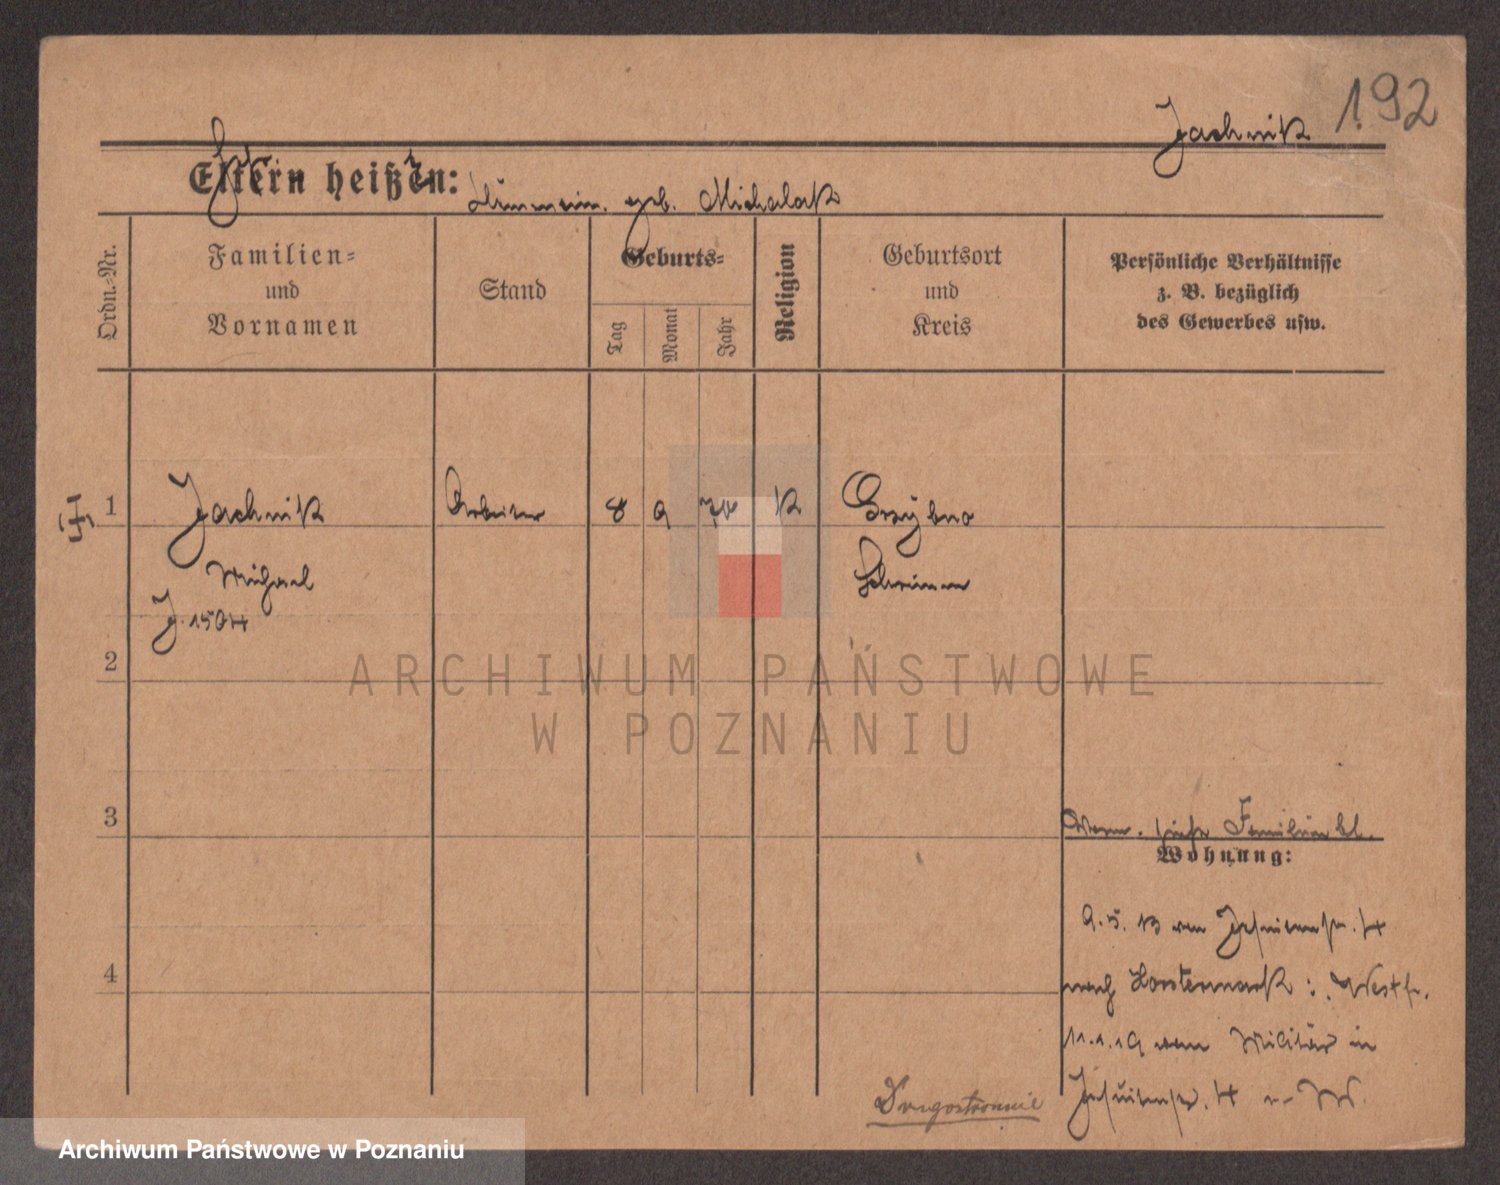 192
Jachnik
Eltern heißen:
geb. Michalak
Ordn.-Nr.
Familien-
und
Vornamen
Stand
Geburts-
Tag
Monat
Jahr
Religion
Geburtsort
und
Kreis
Persönliche Verhältnisse
z. B. bezüglich
des Gewerbes usw.
1
Jachnik
Arbeiter
8
9
K
Grzybno
Michael
Schrimm
J. 1504
2
ARCHIWUM PAŃSTWOWE
W POZNANIU
3
siehe Familienbl.
Wohnung:
9.5.13 von Jesuitenstr. 4
4
nach Horstermark i. Westf.
11.1.19 vom Militär in
Jesuitenstr. 4
Archiwum Państwowe w Poznaniu